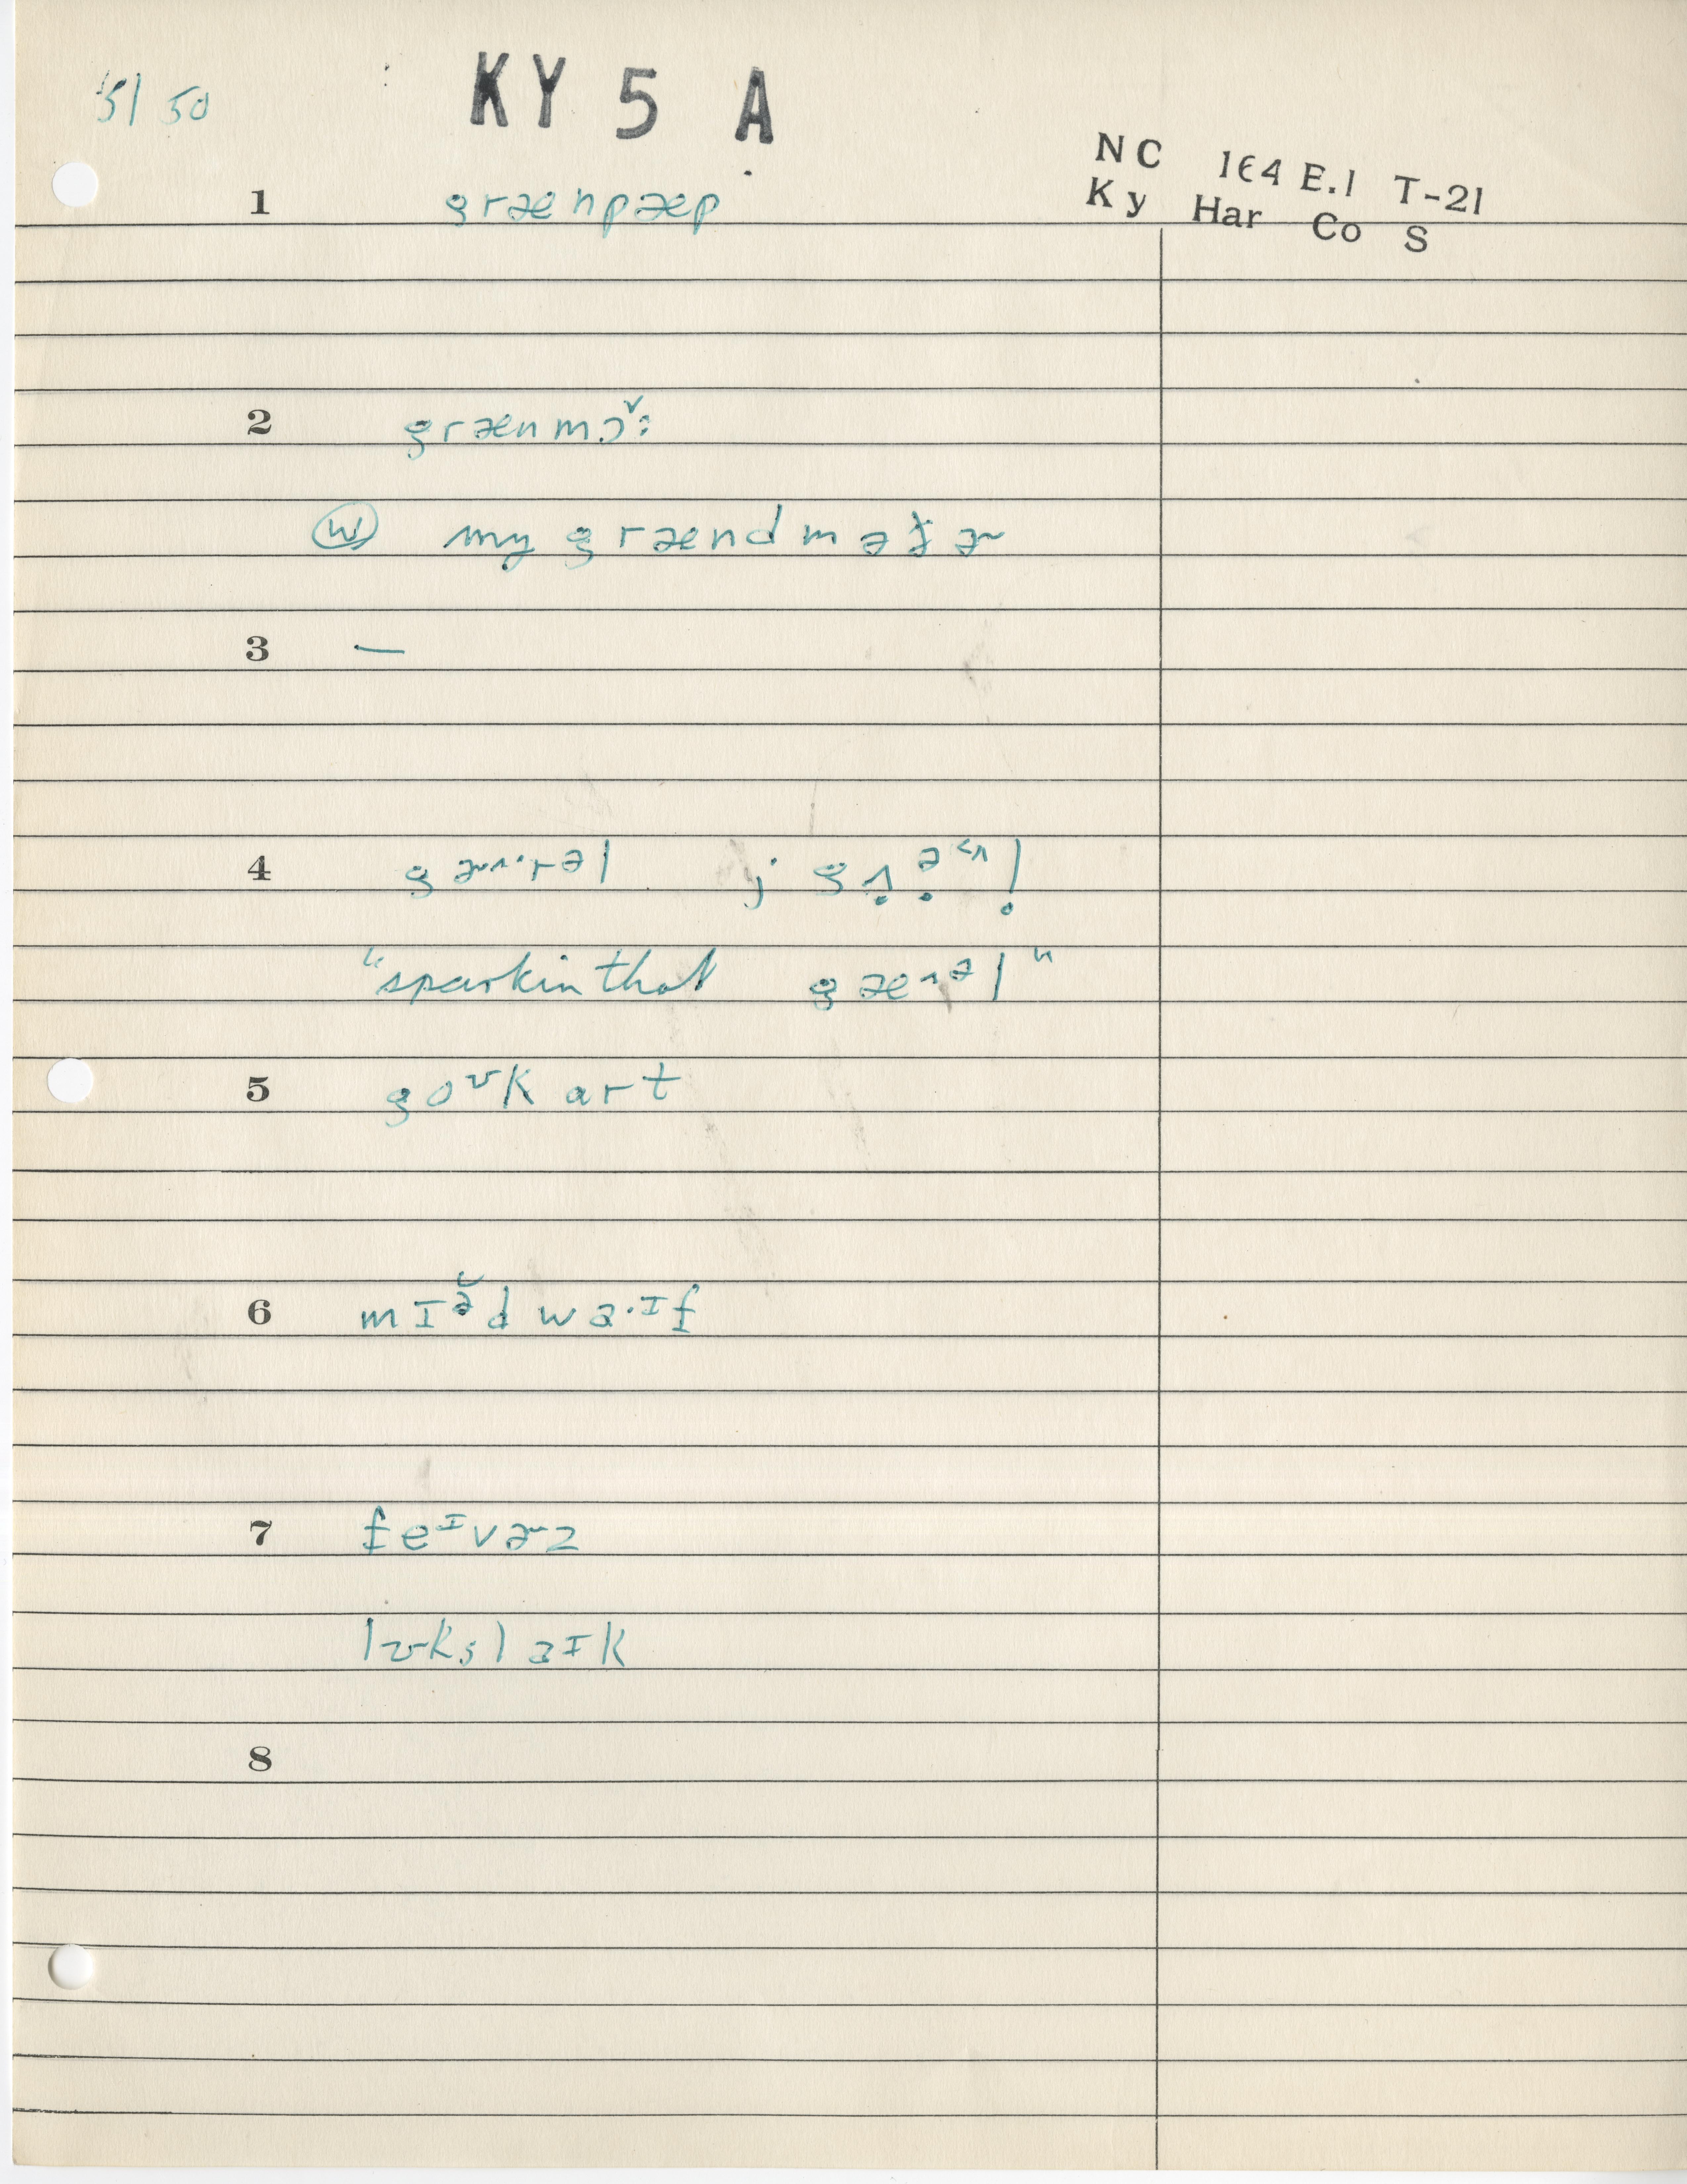 5/50
KY 5 A
NC 164 E.1 T-21
Ky Har Co S
1 grænpæp
2 grænmɔˇ:
(w) my grændməðɚ
3 —
4 gɚʌ·rəl ; gʌ̣ə̣<ʌḷ
"sparkin that gæʌəl"
5 goʊkɑrt
6 mɪə̆dwa·ɪf
7 feɪvɚz
lʊks laɪk
8